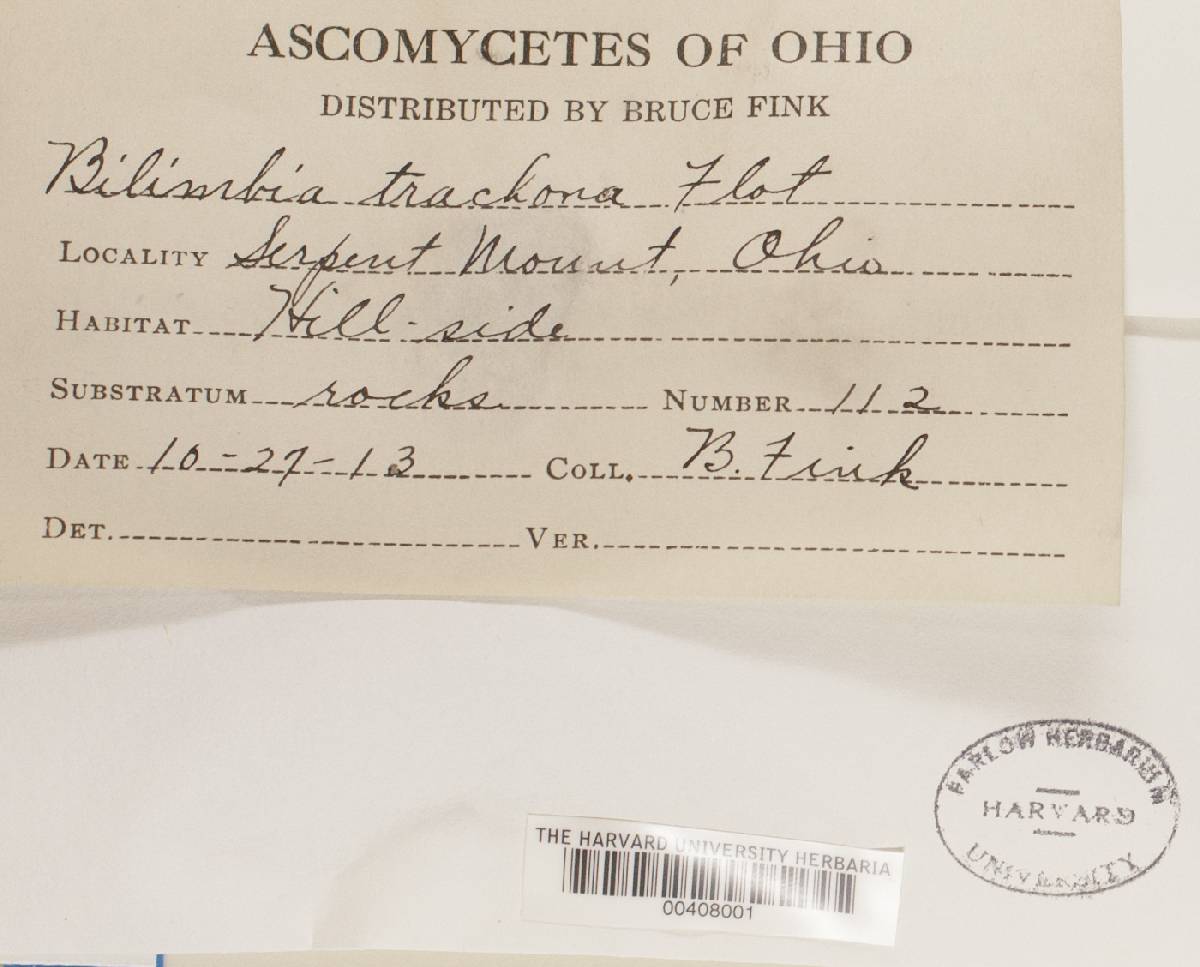 ASCOMYCETES OF OHIO
DISTRIBUTED BY BRUCE FINK
Bilimbia trachona Flot
LOCALITY Serpent Mount, Ohio
HABITAT Hill-side
SUBSTRATUM rocks NUMBER 112
DATE 10-27-13 COLL. B. Fink
DET. VER.
FARLOW HERBARIUM
HARVARD
UNIVERSITY
THE HARVARD UNIVERSITY HERBARIA
00408001